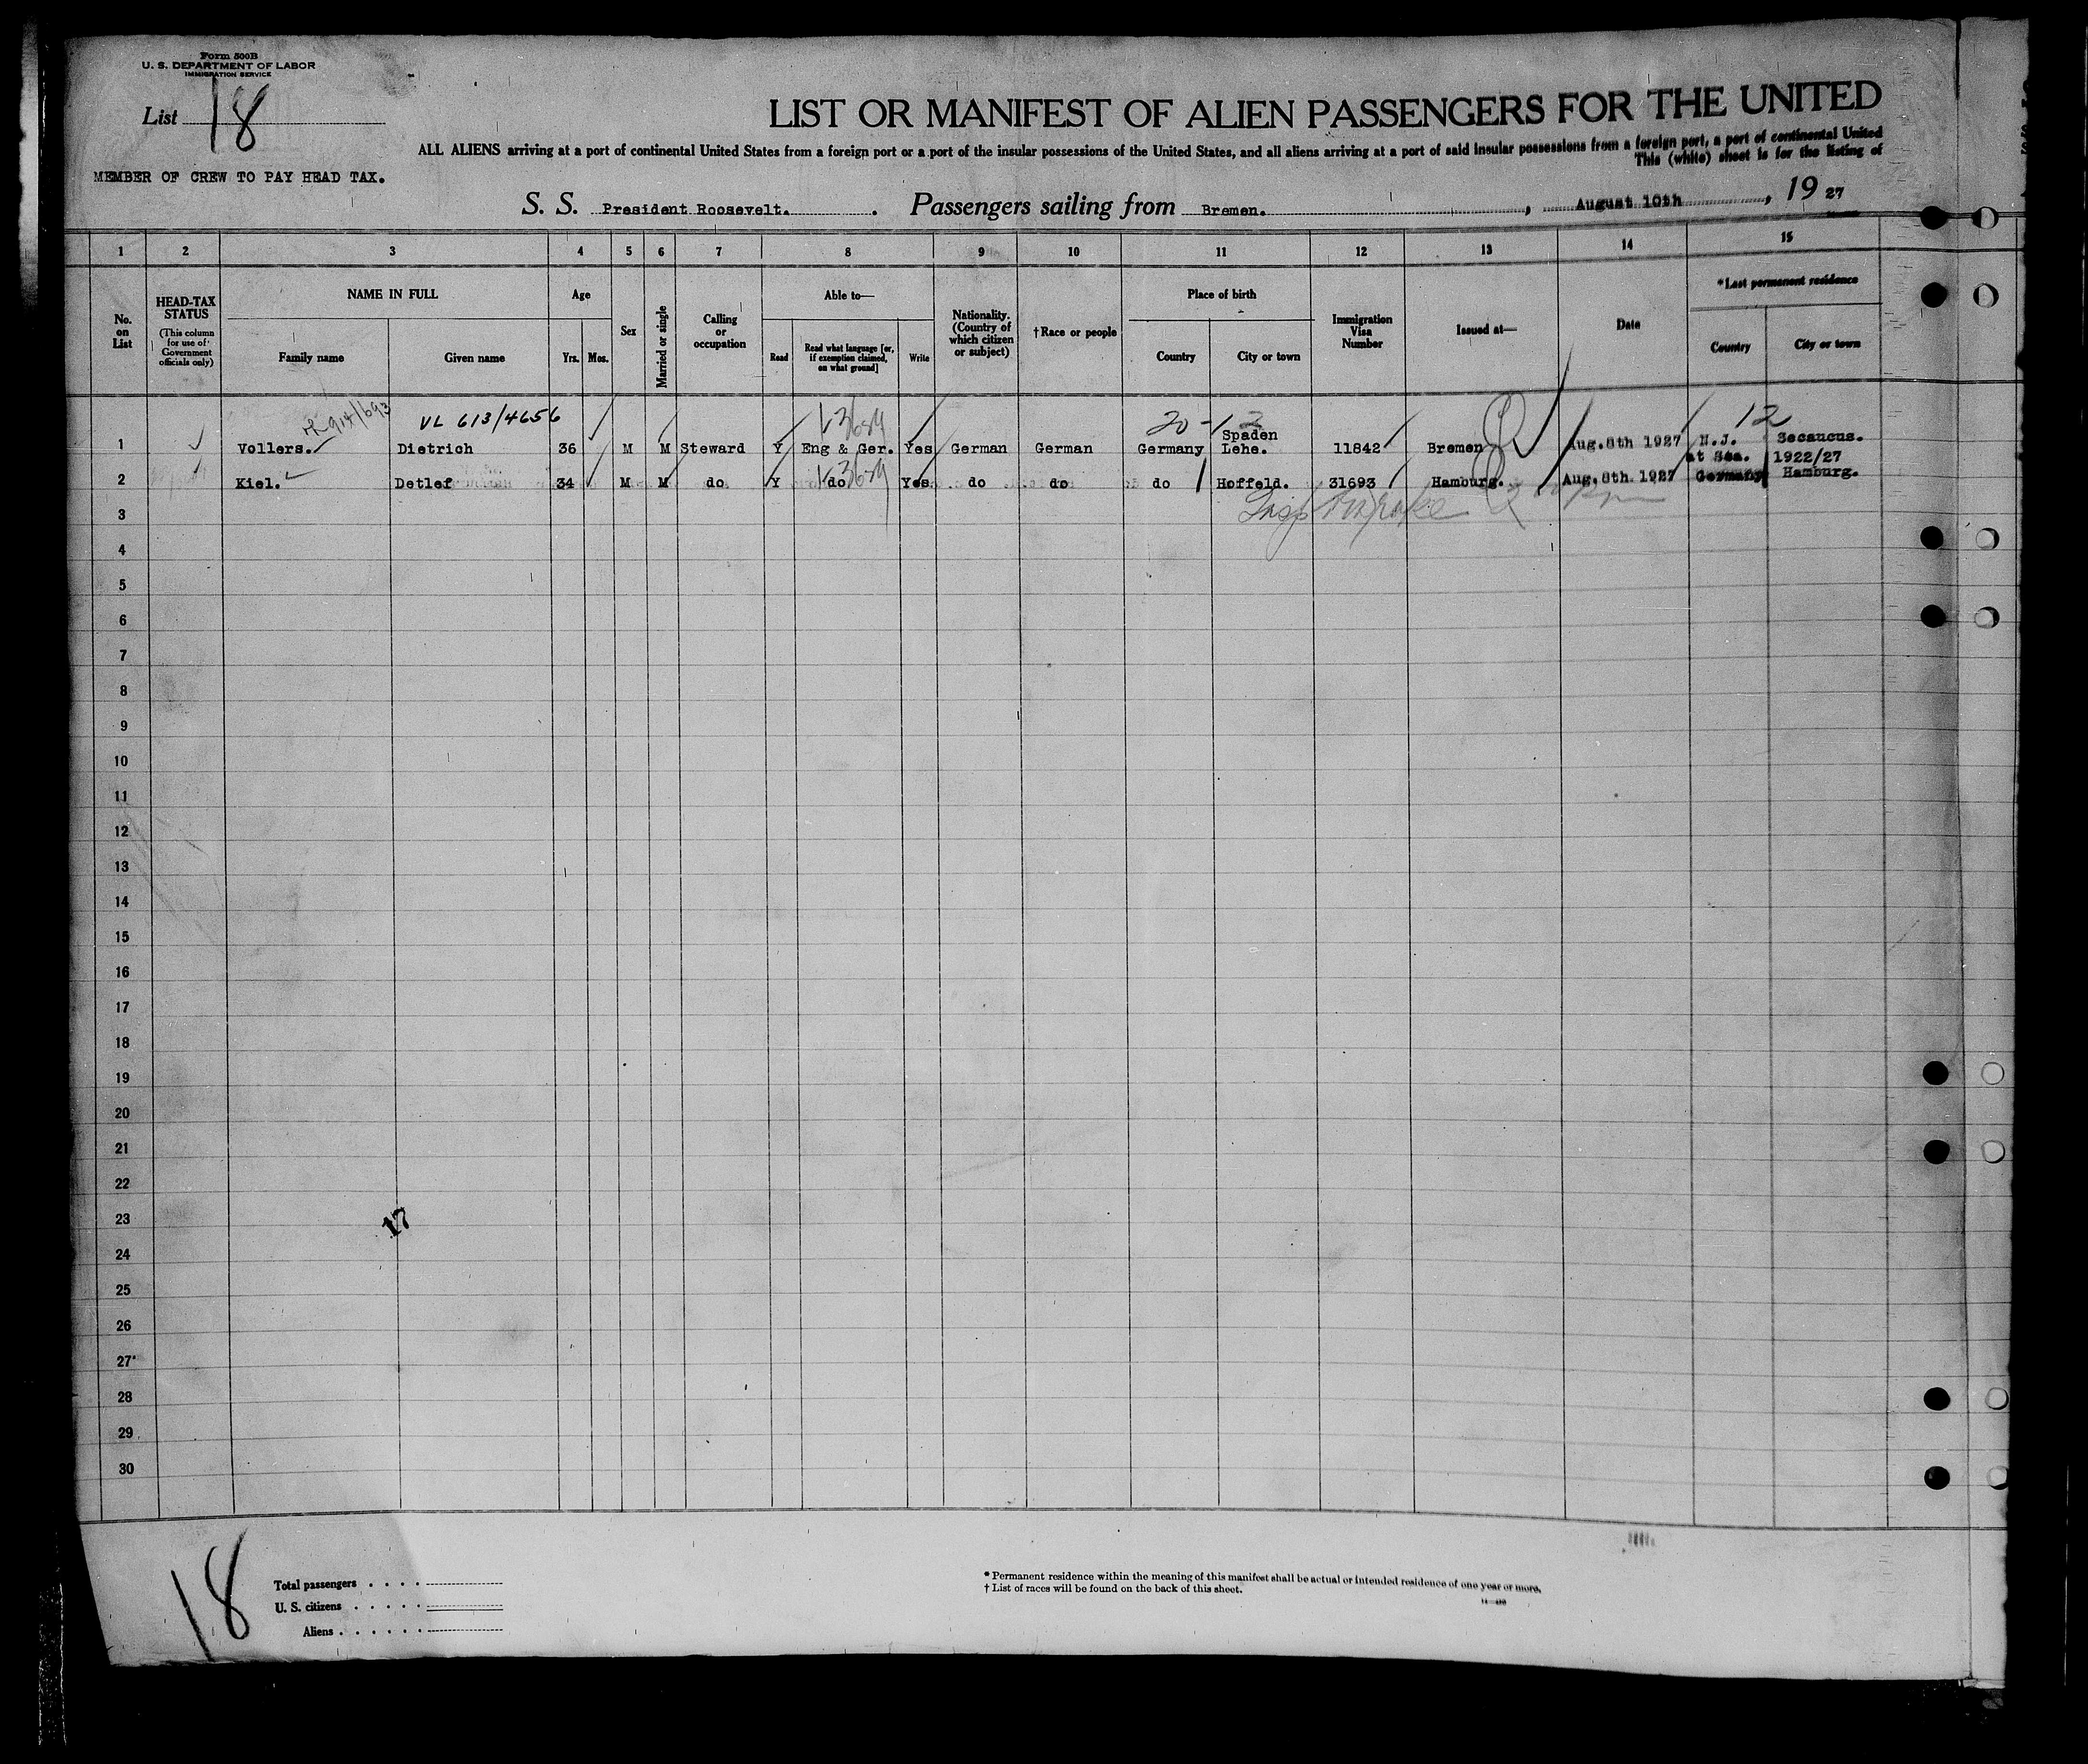 Form 500B
U. S. DEPARTMENT OF LABOR
IMMIGRATION SERVICE
List 18
MEMBER OF CREW TO PAY HEAD TAX.
LIST OR MANIFEST OF ALIEN PASSENGERS FOR THE UNITED
ALL ALIENS arriving at a port of continental United States from a foreign port or a port of the insular possessions of the United States, and all aliens arriving at a port of said insular possessions from a foreign port, a port of continental United
This (white) sheet is for the listing of
S. S. President Roosevelt. Passengers sailing from Bremen. , August 10th , 19 27
1 2 3 4 5 6 7 8 9 10 11 12 13 14 15
No. on List
HEAD-TAX STATUS
(This column for use of Government officials only)
NAME IN FULL
Family name Given name
Age
Yrs. Mos.
Sex
Married or single
Calling or occupation
Able to—
Read
Read what language [or, if exemption claimed, on what ground]
Write
Nationality. (Country of which citizen or subject)
†Race or people
Place of birth
Country City or town
Immigration Visa Number
Issued at—
Date
*Last permanent residence
Country City or town
VL 613/4656 20-12 12
1 Vollers. Dietrich 36 M M Steward Y Eng & Ger. Yes German German Germany Spaden Lehe. 11842 Bremen Aug.8th 1927 N.J. Secaucus.
at Sea. 1922/27
2 Kiel. Detlef 34 M M do Y do Yes do do do Hoffeld. 31693 Hamburg. Aug.8th 1927 Germany Hamburg.
3
4
5
6
7
8
9
10
11
12
13
14
15
16
17
18
19
20
21
22
23
17
24
25
26
27
28
29
30
18
Total passengers
U. S. citizens
Aliens
* Permanent residence within the meaning of this manifest shall be actual or intended residence of one year or more.
† List of races will be found on the back of this sheet.